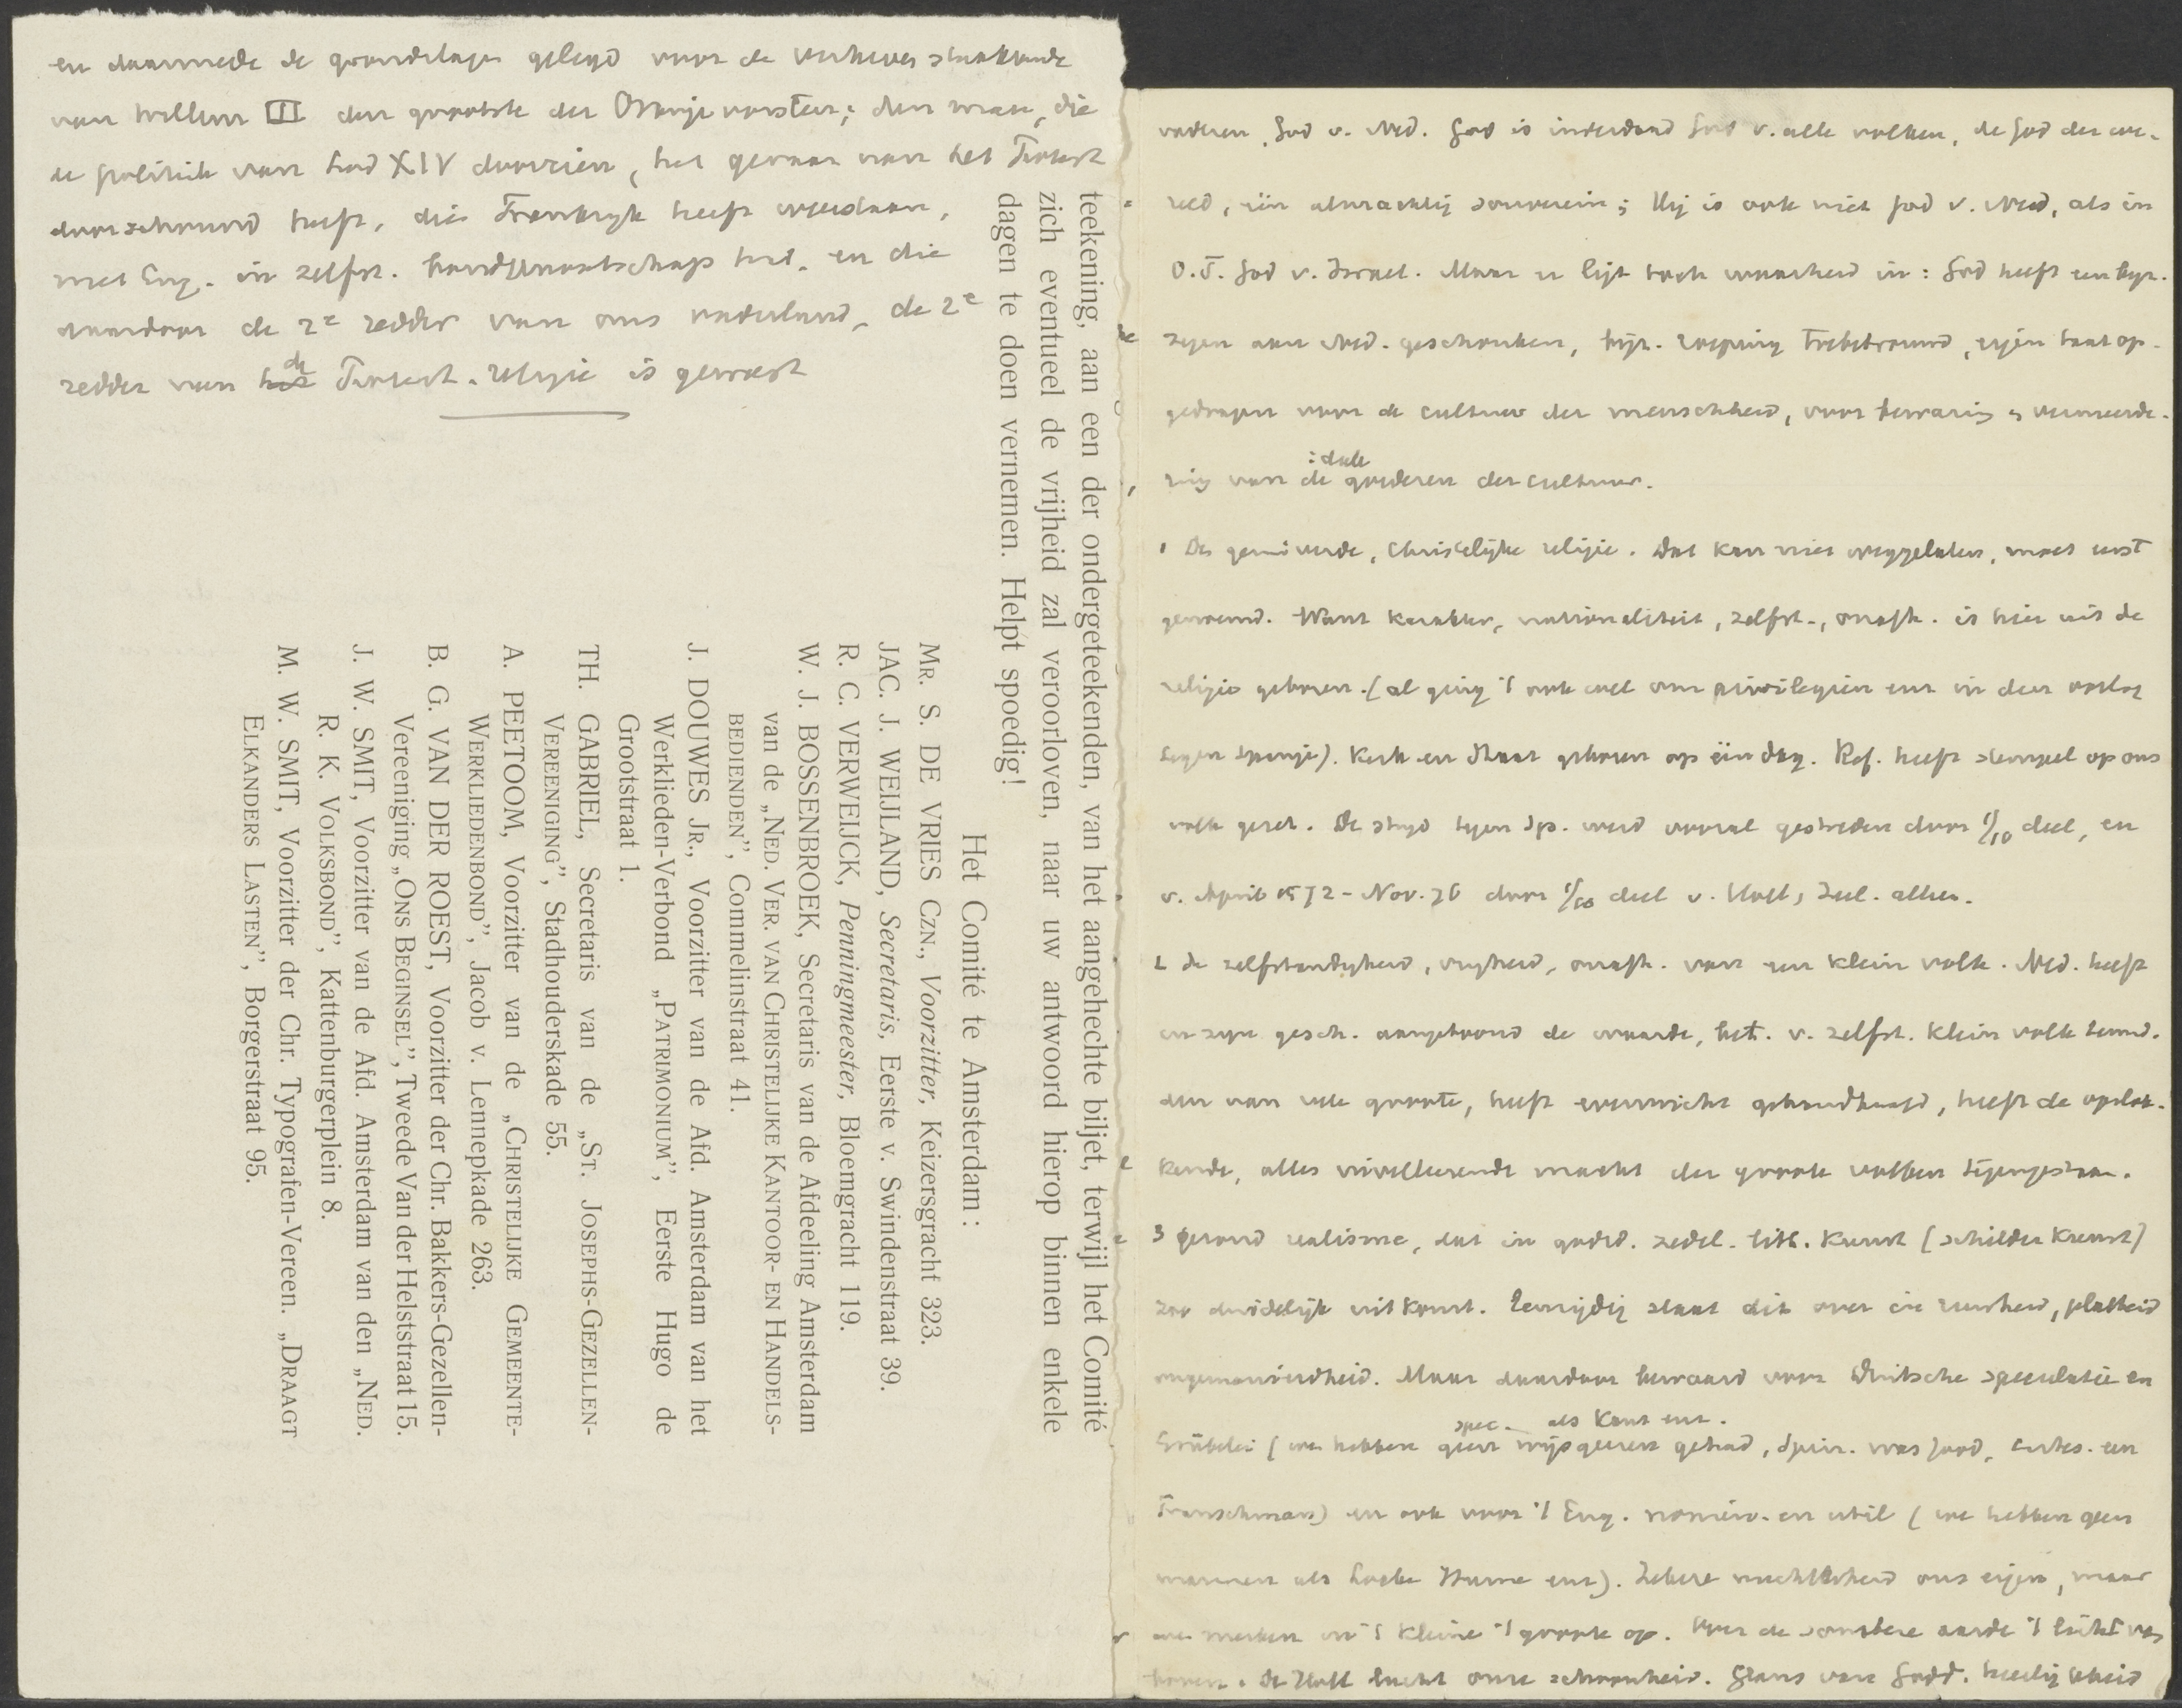 en daarmede de grondslagen gelegd voor de verheven staatkunde
van Willem III den grootste der Oranjevorsten; den man, die
de politiek van Lod XIV doorzien, het gevaar van het Protest
doorschouwd heeft, die Frankrijk heeft weerstaan,
met Eng. in zelfst. bondgenootschap trad, en die
daardoor de 2e redder van ons vaderland, de 2e
redder van het de Protest. religie is geweest
teekening, aan een der ondergeteekenden, van het aangehechte biljet, terwijl het Comité
zich eventueel de vrijheid zal veroorloven, naar uw antwoord hierop binnen enkele
dagen te doen vernemen. Helpt spoedig!
Het Comité te Amsterdam:
MR. S. DE VRIES CZN., Voorzitter, Keizersgracht 323.
JAC. J. WEIJLAND, Secretaris, Eerste v. Swindenstraat 39.
R. C. VERWEIJCK, Penningmeester, Bloemgracht 119.
W. J. BOSSENBROEK, Secretaris van de Afdeeling Amsterdam
van de „NED. VER. VAN CHRISTELIJKE KANTOOR- EN HANDELS-
BEDIENDEN”, Commelinstraat 41.
J. DOUWES JR., Voorzitter van de Afd. Amsterdam van het
Werklieden-Verbond „PATRIMONIUM”, Eerste Hugo de
Grootstraat 1.
TH. GABRIEL, Secretaris van de „ST. JOSEPHS-GEZELLEN-
VEREENIGING”, Stadhouderskade 55.
A. PEETOOM, Voorzitter van de „CHRISTELIJKE GEMEENTE-
WERKLIEDENBOND”, Jacob v. Lennepkade 263.
B. G. VAN DER ROEST, Voorzitter der Chr. Bakkers-Gezellen-
Vereeniging „ONS BEGINSEL”, Tweede Van der Helststraat 15.
J. W. SMIT, Voorzitter van de Afd. Amsterdam van den „NED.
R. K. VOLKSBOND”, Kattenburgerplein 8.
M. W. SMIT, Voorzitter der Chr. Typografen-Vereen. „DRAAGT
ELKANDERS LASTEN”, Borgerstraat 95.
vaderen, God v. Ned. God is inderdaad God v. alle volken, de God der we-
reld, één almachtig souverein; Hij is ook niet God v. Ned, als in
O.T. God v. Israel. Maar er ligt toch waarheid in: God heeft een byz.
zegen aan Ned. geschonken, byz. roeping toebetrouwd, eigen taak op-
gedragen voor de cultuur der menschheid, voor bewaring en vermeerde-
ring van de ideale goederen der cultuur.
1 De gezuiverde, Christelijke religie. Dat kan niet weggelaten, moet eerst
genoemd. Want karakter, nationaliteit, zelfst., onafh. is hier uit de
religie geboren. (al ging 't ook wel om privilegiën enz in den oorlog
tegen Spanje). Kerk en Staat geboren op één dag. Ref. heeft stempel op ons
volk gezet. De strijd tegen Sp. werd vooral gestreden door 1/10 deel, en
v. April 1572 - Nov. 76 door deel v. Holl, Zeel. alleen.
2 de zelfstandigheid, vrijheid, onafh. van een klein volk. Ned. heeft
in zijn gesch. aangetoond de waarde, bet. v. zelfst. klein volk temid-
den van vele groote, heeft evenwicht gehandhaafd, heeft de opslok-
kende, alles nivelleerende macht der groote volken tegengestaan.
3 gezond realisme, dat in godsd. zedel. litt. kunst (schilderkunst)
zoo duidelijk uitkomt. Eenzijdig slaat dit over in ruwheid, platheid
ongemanierdheid. Maar daardoor bewaard voor Duitsche speculatie en
Grübelei (we hebben geen spec. wijsgeeren als Kant enz. gehad, Spin. was Jood, Cartes. een
Franschman) en ook voor 't Eng. nomin. en util (we hebben geen
mannen als Locke Hume enz). Zekere nuchterheid ons eigen, maar
we merken in 't kleine 't groote op. Over de sombere aarde 't licht van
boven. De Holl lucht onze schoonheid. Glans van Godd. heerlijkheid